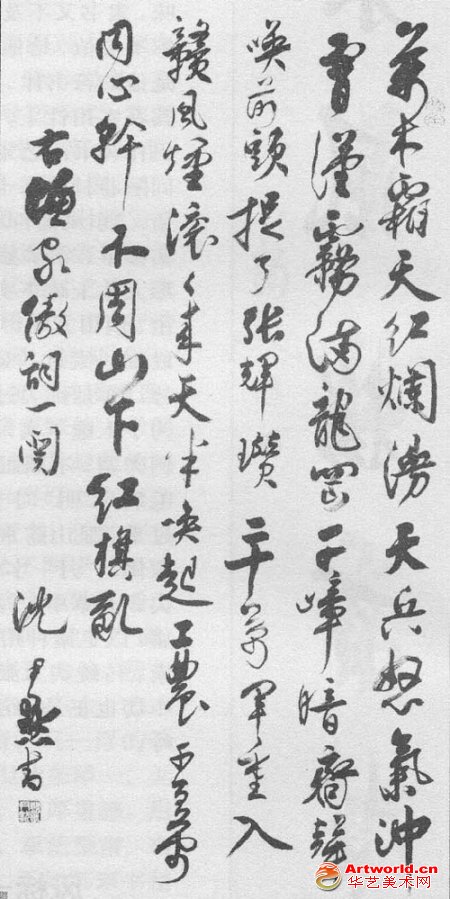 萬木霜天红爛漫天兵怒氣沖
霄漢霧滿龍岡千嶂暗齊聲
唤前頭捉了张輝瓚二十萬軍重入
贛風煙滚〻来天半唤起工農千百萬
同心幹不周山下红旗亂
右漁家傲詞一闋 沈尹默書
Artworld.cn
华艺美术网